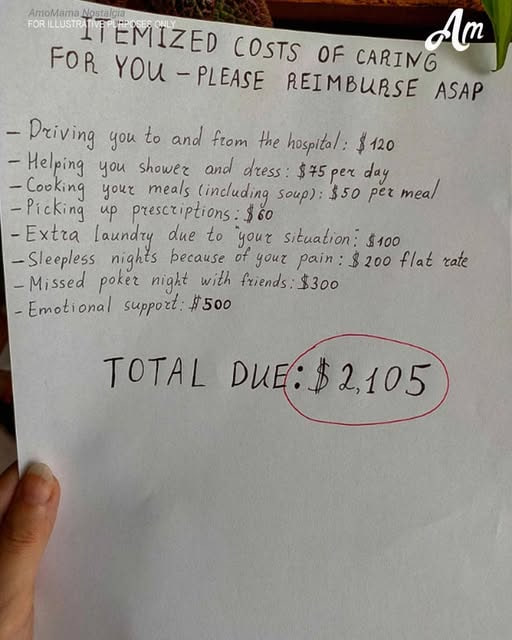 AmoMama Nostalgia
FOR ILLUSTRATIVE PURPOSES ONLY
Am
ITEMIZED COSTS OF CARING
FOR YOU – PLEASE REIMBURSE ASAP
– Driving you to and from the hospital: $120
– Helping you shower and dress: $75 per day
– Cooking your meals (including soup): $50 per meal
– Picking up prescriptions: $60
– Extra laundry due to "your situation": $100
– Sleepless nights because of your pain: $200 flat rate
– Missed poker night with friends: $300
– Emotional support: $500
TOTAL DUE: $2,105